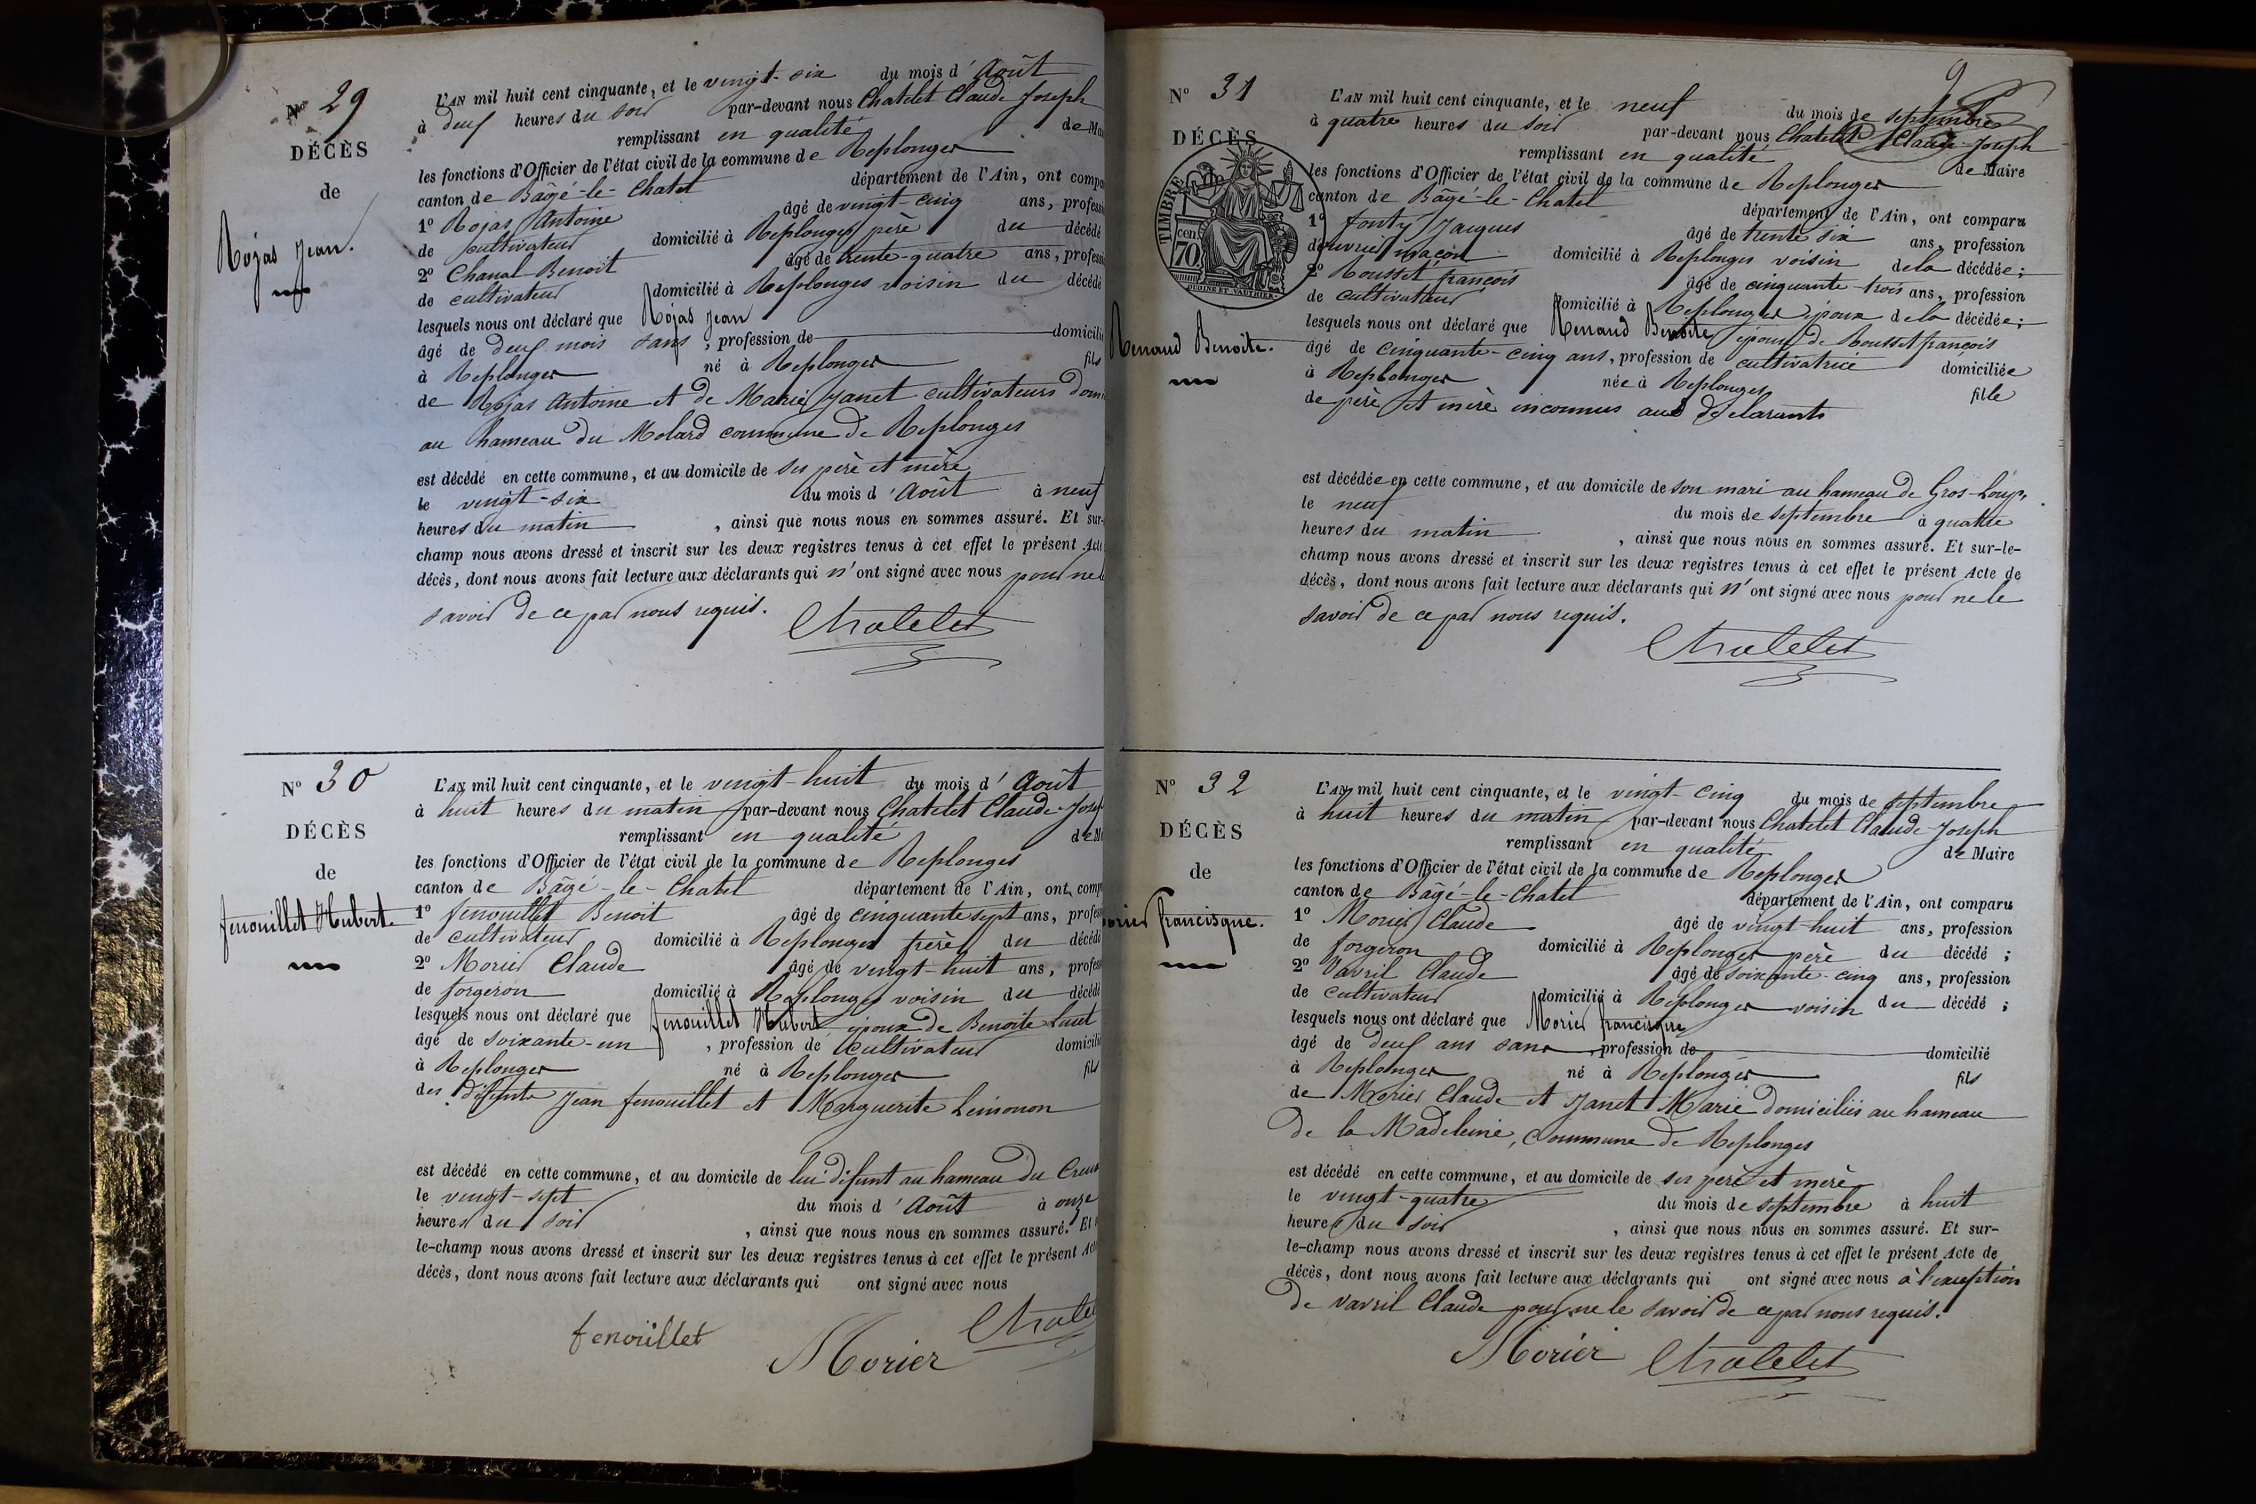 N° 29
DÉCÈS
de
Rojas Jean.
L'AN mil huit cent cinquante, et le vingt-six du mois d'Août
à deux heures du soir par-devant nous Chatelet Claude Joseph
remplissant en qualité de
les fonctions d'Officier de l'état civil de la commune de Replonges
canton de Bâgé-le-Chatel département de l'Ain, ont
1° Rojas Antoine âgé de vingt-cinq ans,
de cultivateur domicilié à Replonges père du décédé
2° Chanal Benoit âgé de trente-quatre ans,
de cultivateur domicilié à Replonges voisin du décédé
lesquels nous ont déclaré que Rojas Jean
âgé de deux mois sans, profession de
à Replonges né à Replonges fils
de Rojas Antoine et de Marie Janet cultivateurs
au hameau du Molard commune de Replonges
est décédé en cette commune, et au domicile de ses père et mère
le vingt-six du mois d'Août à neuf
heures du matin, ainsi que nous nous en sommes assuré. Et sur-
champ nous avons dressé et inscrit sur les deux registres tenus à cet effet le présent Acte
décès, dont nous avons fait lecture aux déclarants qui n'ont signé avec nous pour ne
savoir de ce par nous requis.
Chatelet
N° 30
DÉCÈS
de
fenouillet Hubert.
L'AN mil huit cent cinquante, et le vingt-huit du mois d'Août
à huit heures du matin par-devant nous Chatelet Claude
remplissant en qualité de
les fonctions d'Officier de l'état civil de la commune de Replonges
canton de Bâgé-le-Chatel département de l'Ain, ont
1° fenouillet Benoit âgé de cinquante sept ans,
de cultivateur domicilié à Replonges frère du décédé
2° Morier Claude âgé de vingt-huit ans,
de forgeron domicilié à Replonges voisin du décédé
lesquels nous ont déclaré que fenouillet Hubert époux de Benoite
âgé de soixante-un, profession de cultivateur
à Replonges né à Replonges fils
des défunts Jean fenouillet et Marguerite
est décédé en cette commune, et au domicile de lui défunt au hameau du
le vingt-sept du mois d'Août à onze
heures du soir, ainsi que nous nous en sommes assuré. Et
le-champ nous avons dressé et inscrit sur les deux registres tenus à cet effet le présent
décès, dont nous avons fait lecture aux déclarants qui ont signé avec nous
fenouillet Morier
9
N° 31
DÉCÈS
TIMBRE
70 cen
Renaud Benoite.
L'AN mil huit cent cinquante, et le neuf du mois de septembre
à quatre heures du soir par-devant nous Chatelet Claude-Joseph
remplissant en qualité de Maire
les fonctions d'Officier de l'état civil de la commune de Replonges
canton de Bâgé-le-Chatel département de l'Ain, ont comparu
1° fonty Jacques âgé de trente six ans, profession
d'ouvrier maçon domicilié à Replonges voisin de la décédée;
2° Rousset françois âgé de cinquante-trois ans, profession
de cultivateur domicilié à Replonges époux de la décédée;
lesquels nous ont déclaré que Renaud Benoite épouse de Rousset françois
âgé de cinquante-cinq ans, profession de cultivatrice domiciliée
à Replonges née à Replonges fille
de père et mère inconnus aux déclarants
est décédée en cette commune, et au domicile de son mari au hameau de Gros-Loup,
le neuf du mois de septembre à quatre
heures du matin, ainsi que nous nous en sommes assuré. Et sur-le-
champ nous avons dressé et inscrit sur les deux registres tenus à cet effet le présent Acte de
décès, dont nous avons fait lecture aux déclarants qui n'ont signé avec nous pour ne le
savoir de ce par nous requis.
Chatelet
N° 32
DÉCÈS
de
francisque.
L'AN mil huit cent cinquante, et le vingt-cinq du mois de septembre
à huit heures du matin par-devant nous Chatelet Claude-Joseph
remplissant en qualité de Maire
les fonctions d'Officier de l'état civil de la commune de Replonges
canton de Bâgé-le-Chatel département de l'Ain, ont comparu
1° Morier Claude âgé de vingt-huit ans, profession
de forgeron domicilié à Replonges père du décédé;
2° Vavril Claude âgé de soixante-cinq ans, profession
de cultivateur domicilié à Replonges voisin du décédé;
lesquels nous ont déclaré que Morier francisque
âgé de deux ans sans, profession de domicilié
à Replonges né à Replonges fils
de Morier Claude et Janet Marie domiciliés au hameau
de la Madeleine, commune de Replonges
est décédé en cette commune, et au domicile de ses père et mère
le vingt-quatre du mois de septembre à huit
heures du soir, ainsi que nous nous en sommes assuré. Et sur-
le-champ nous avons dressé et inscrit sur les deux registres tenus à cet effet le présent Acte de
décès, dont nous avons fait lecture aux déclarants qui ont signé avec nous à l'exception
de Vavril Claude pour ne le savoir de ce par nous requis.
Morier Chatelet